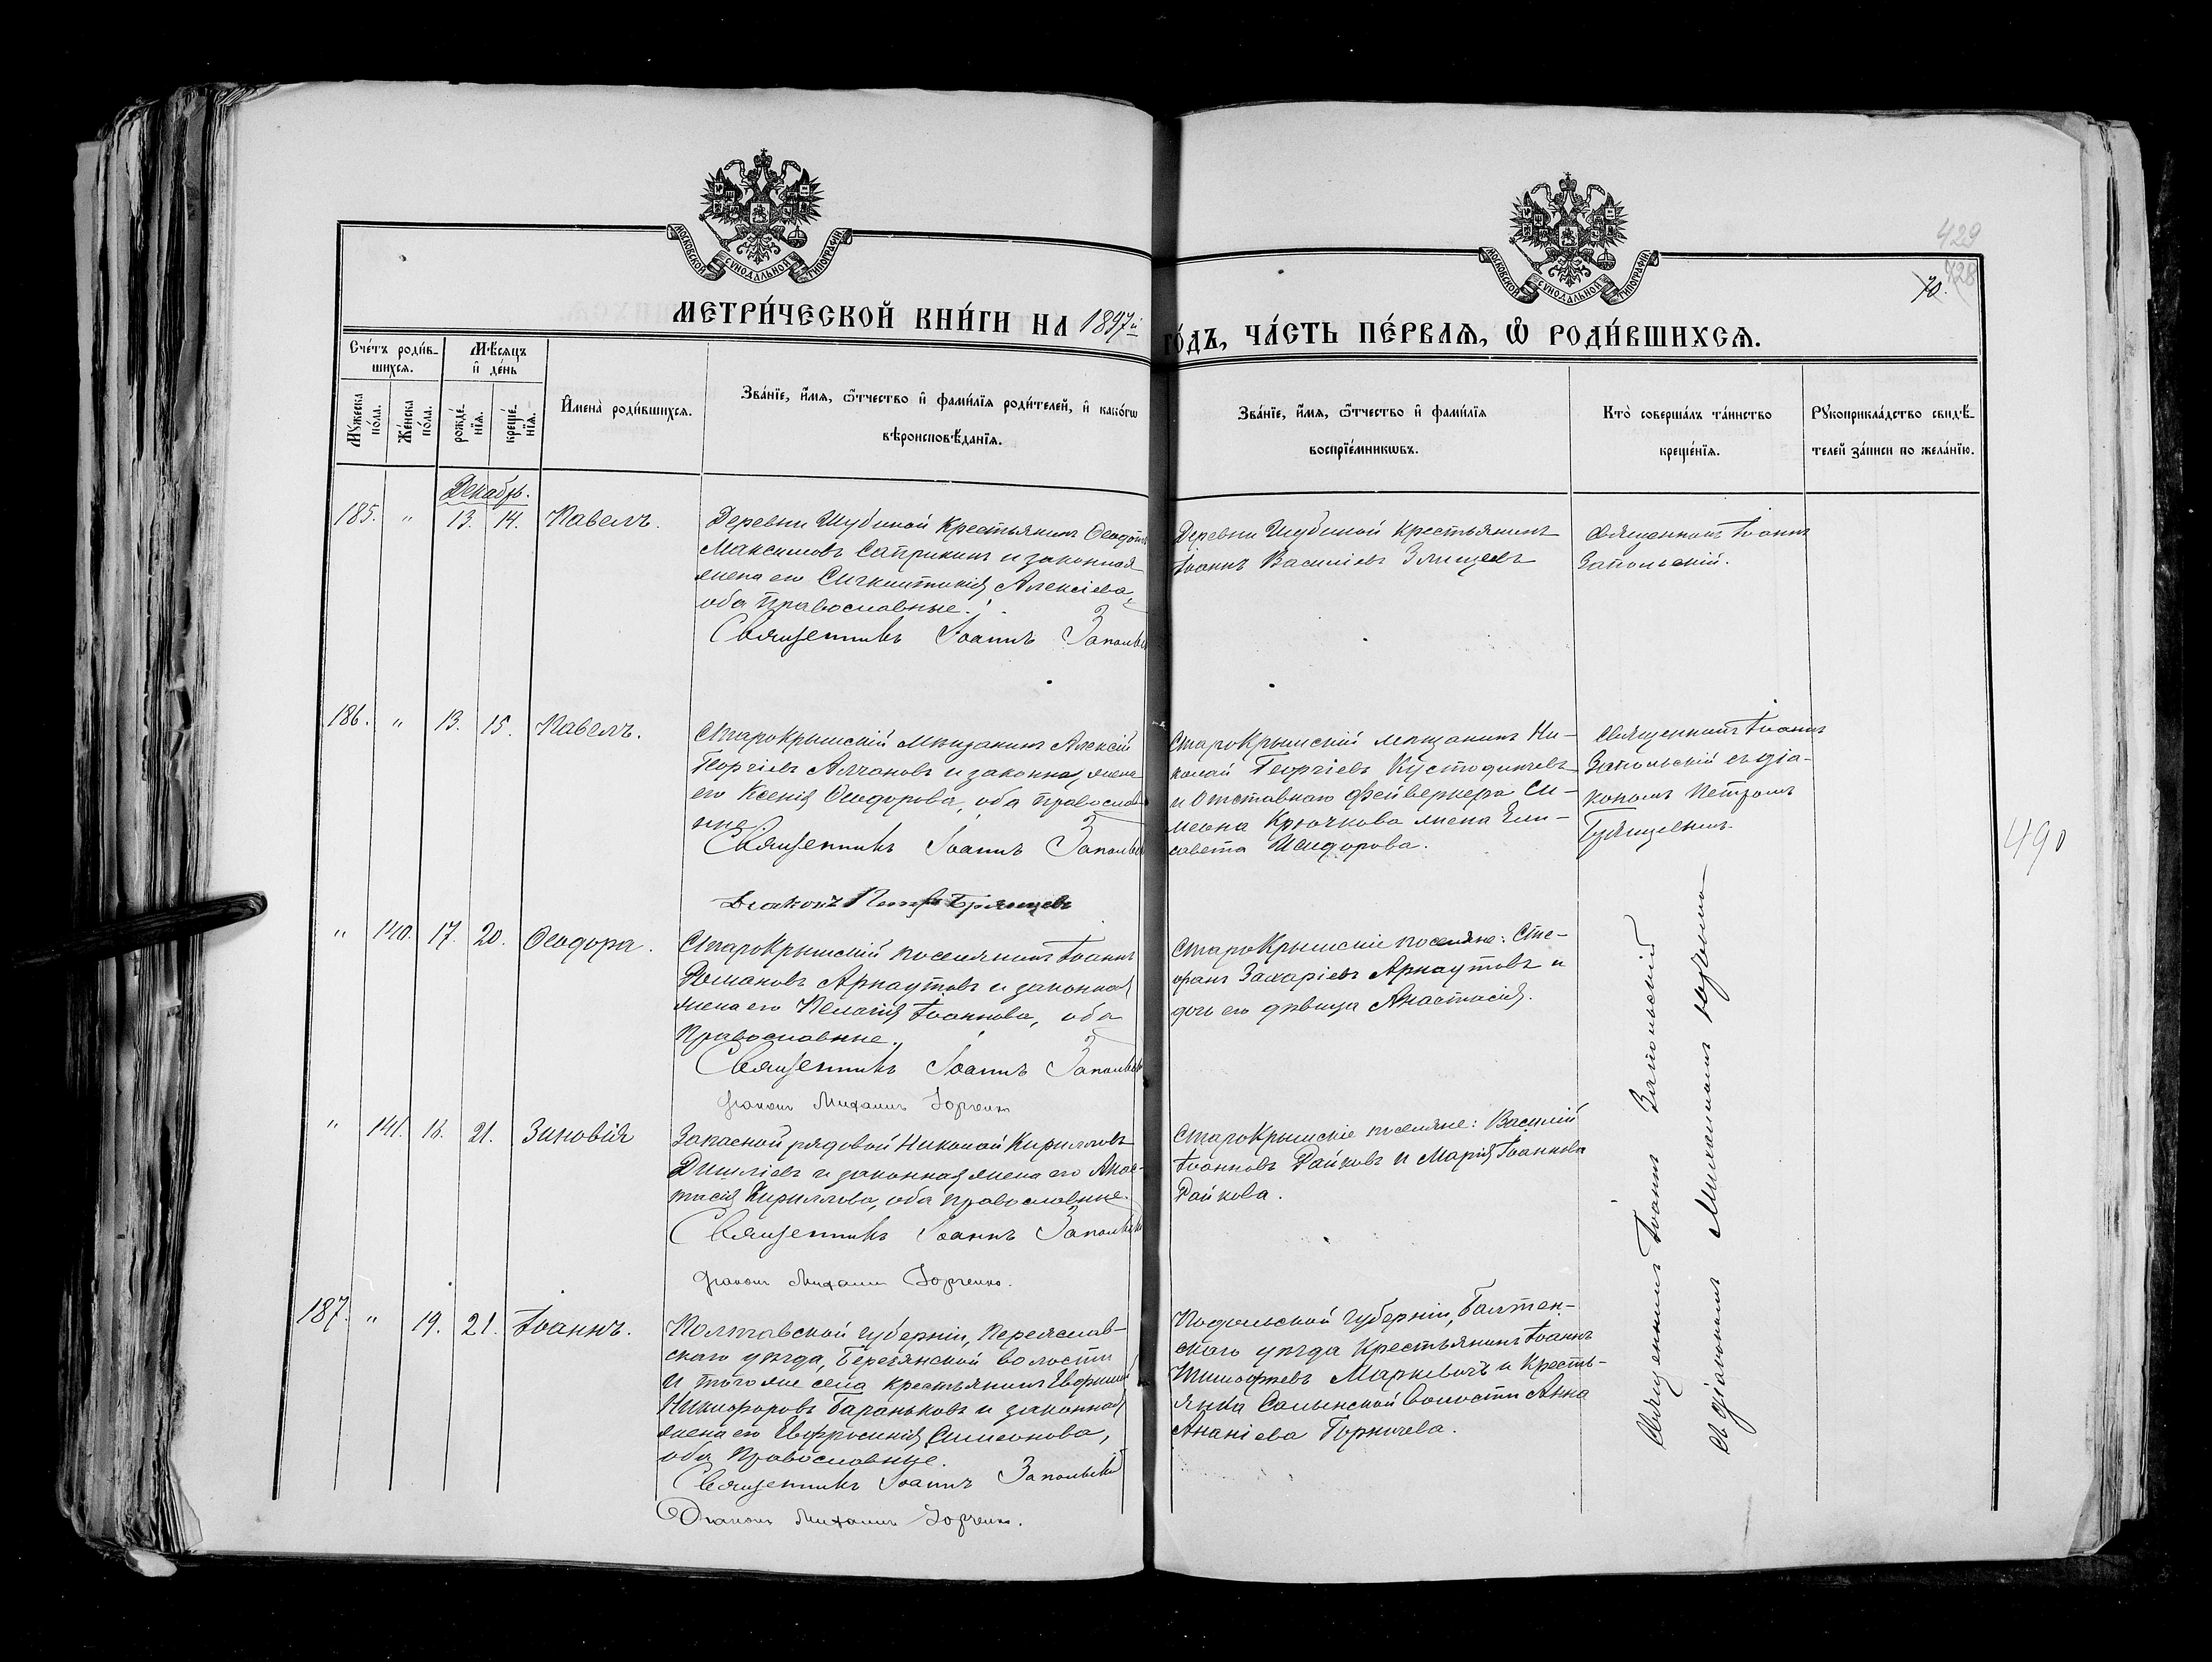 МОСКОВСКОЙ СѴНОДАЛЬНОЙ ТИПОГРАФІИ
МОСКОВСКОЙ СѴНОДАЛЬНОЙ ТИПОГРАФІИ
429
428
70.
МЕТРИ́ЧЕСКОЙ КНИ́ГИ НА 1897й
ГО́ДЪ, ЧА́СТЬ ПЕ́РВАѦ, Ѽ РОДИ́ВШИХСѦ.
Сче́тъ роди́в-
шихсѧ.
Мѣ́сѧцъ
и҆ де́нь
Мꙋ́жеска по́ла.
Же́нска по́ла.
рожде́-
нїѧ.
креще́-
нїѧ.
И҆мена̀ роди́вшихсѧ.
Зва́нїе, и҆́мѧ, ѻ҆́тчество и҆ фами́лїѧ роди́телей, и҆ како́гѡ
вѣроисповѣ́данїѧ.
Зва́нїе, и҆́мѧ, ѻ҆́тчество и҆ фами́лїѧ
воспрїе́мникѡвъ.
Кто̀ соверша́лъ та́инство
креще́нїѧ.
Рꙋкоприкла́дство свидѣ́-
телей за́писи по жела́нїю.
Декабрь.
185. " 13. 14. Павелъ.
Деревни Шубиной Крестьянинъ Ѳеодотъ
Максимовъ Саприкинъ и законная
жена его Алексіева,
оба Православные.
Священникъ Іоаннъ Запольскій
Деревни Шубиной Крестьянинъ
Іоаннъ Василіевъ
Священникъ Іоаннъ
Запольскій.
186. " 13. 15. Павелъ.
Старокрымскій мѣщанинъ Алексій
Георгіевъ Алчановъ и законная жена
его Ксенія Ѳеодорова, оба православ-
ные.
Священникъ Іоаннъ Запольскій
Діаконъ Петръ Брянцевъ
Старокрымскій мѣщанинъ Ни-
колай Георгіевъ Кустодинчевъ
и Отставнаго фейверкера Си-
меона Крючкова жена Ели-
савета Исидорова.
Священникъ Іоаннъ
Запольскій съ діа-
кономъ Петромъ
Брянцевымъ.
490
" 140. 17. 20. Ѳеодора.
Старокрымскій поселянинъ Іоаннъ
Романовъ Арнаутовъ и законная
жена его Пелагія Іоаннова, оба
Православные.
Священникъ Іоаннъ Запольскій
діаконъ Михаилъ Юрченко
Старокрымскіе поселяне: Сте-
фанъ Захаріевъ Арнаутовъ и
дочь его дѣвица Анастасія.
" 141. 18. 21. Зиновія
Запасной рядовой Николай Кирилловъ
Дишліевъ и законная жена его Анас-
тасія Кириллова, оба православные.
Священникъ Іоаннъ Запольскій
діаконъ Михаилъ Юрченко.
Старокрымскіе поселяне: Василій
Іоанновъ Райковъ и Марія Іоаннова
Райкова.
187. " 19. 21. Іоаннъ.
Полтавской губерніи, Переяслав-
скаго уѣзда, Березянской волости
и того же села крестьянинъ
Никифоровъ Бараньковъ и законная
жена его Евфросинія Симеонова,
оба Православные.
Священникъ Іоаннъ Запольскій
Діаконъ Михаилъ Юрченко.
Подольской губерніи, Балтен-
скаго уѣзда Крестьянинъ Іоаннъ
Тимофѣевъ Маркевичъ и Кресть-
янка волости Анна
Ананіева Горничева.
Священникъ Іоаннъ Запольскій
съ діакономъ Михаиломъ Юрченко